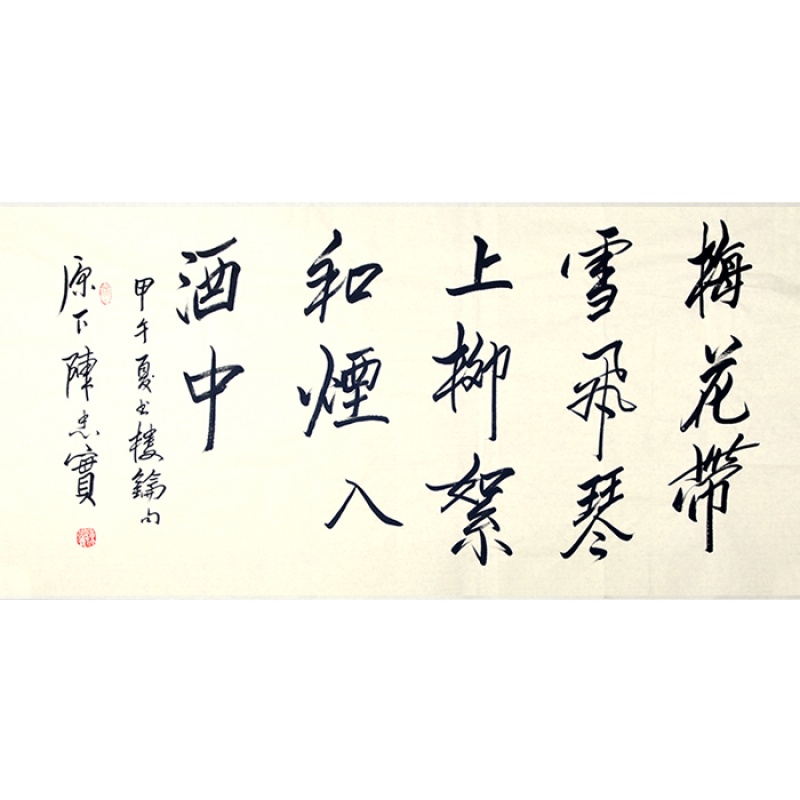 梅花帶
雪飛琴
上柳絮
和煙入
酒中
甲午夏书樓鑰句
原下陳忠實